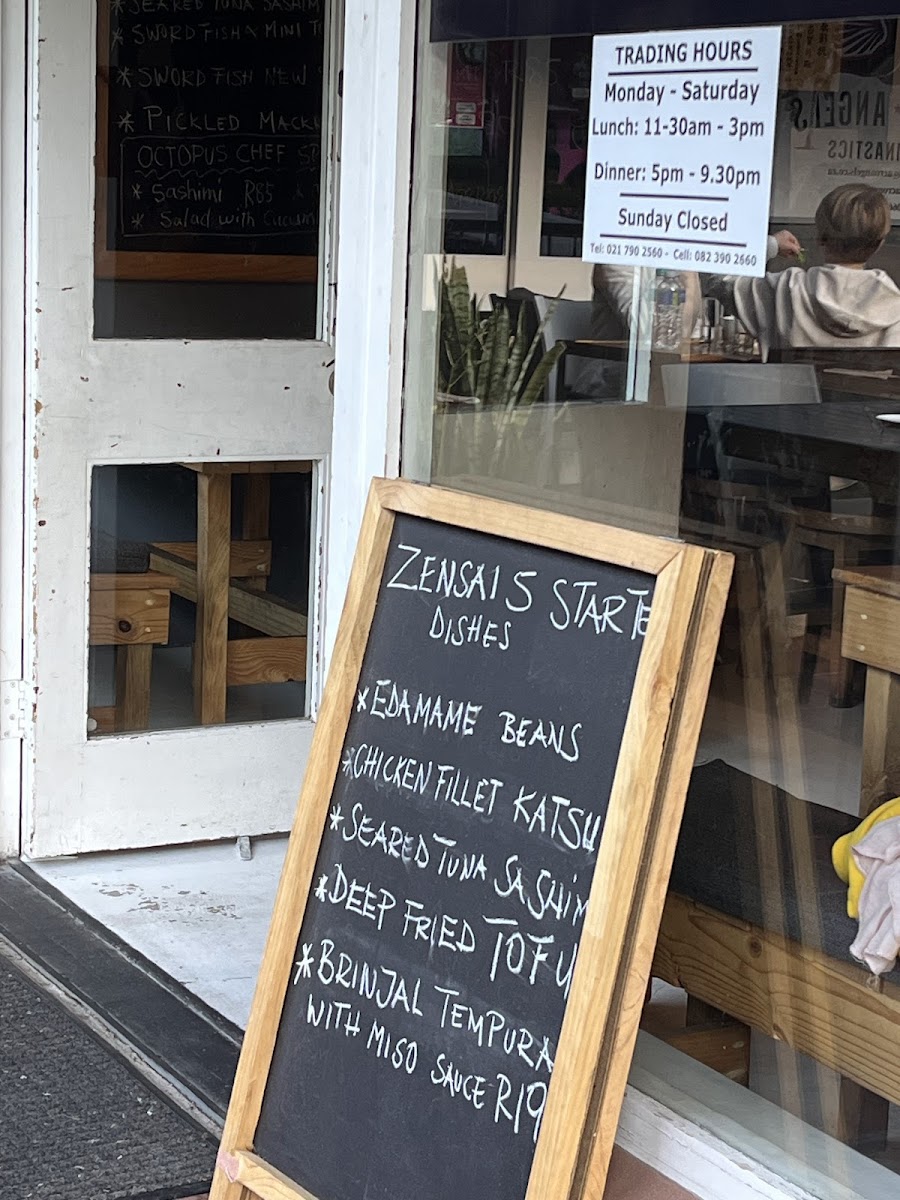 SEARED TUNA SASHIM
* SWORD FISH & MINI T
* SWORD FISH NEW
* PICKLED MACK
OCTOPUS CHEF SP
* Sashimi R85
* Salad with Cucum
TRADING HOURS
Monday - Saturday
Lunch: 11-30am - 3pm
Dinner: 5pm - 9.30pm
Sunday Closed
Tel: 021 790 2560 - Cell: 082 390 2660
ANGELS
NASTICS
ZENSAI 5 STARTE
DISHES
*EDAMAME BEANS
*CHICKEN FILLET KATSU
*SEARED TUNA SASHIM
*DEEP FRIED TOFU
*BRINJAL TEMPURA
WITH MISO SAUCE R19